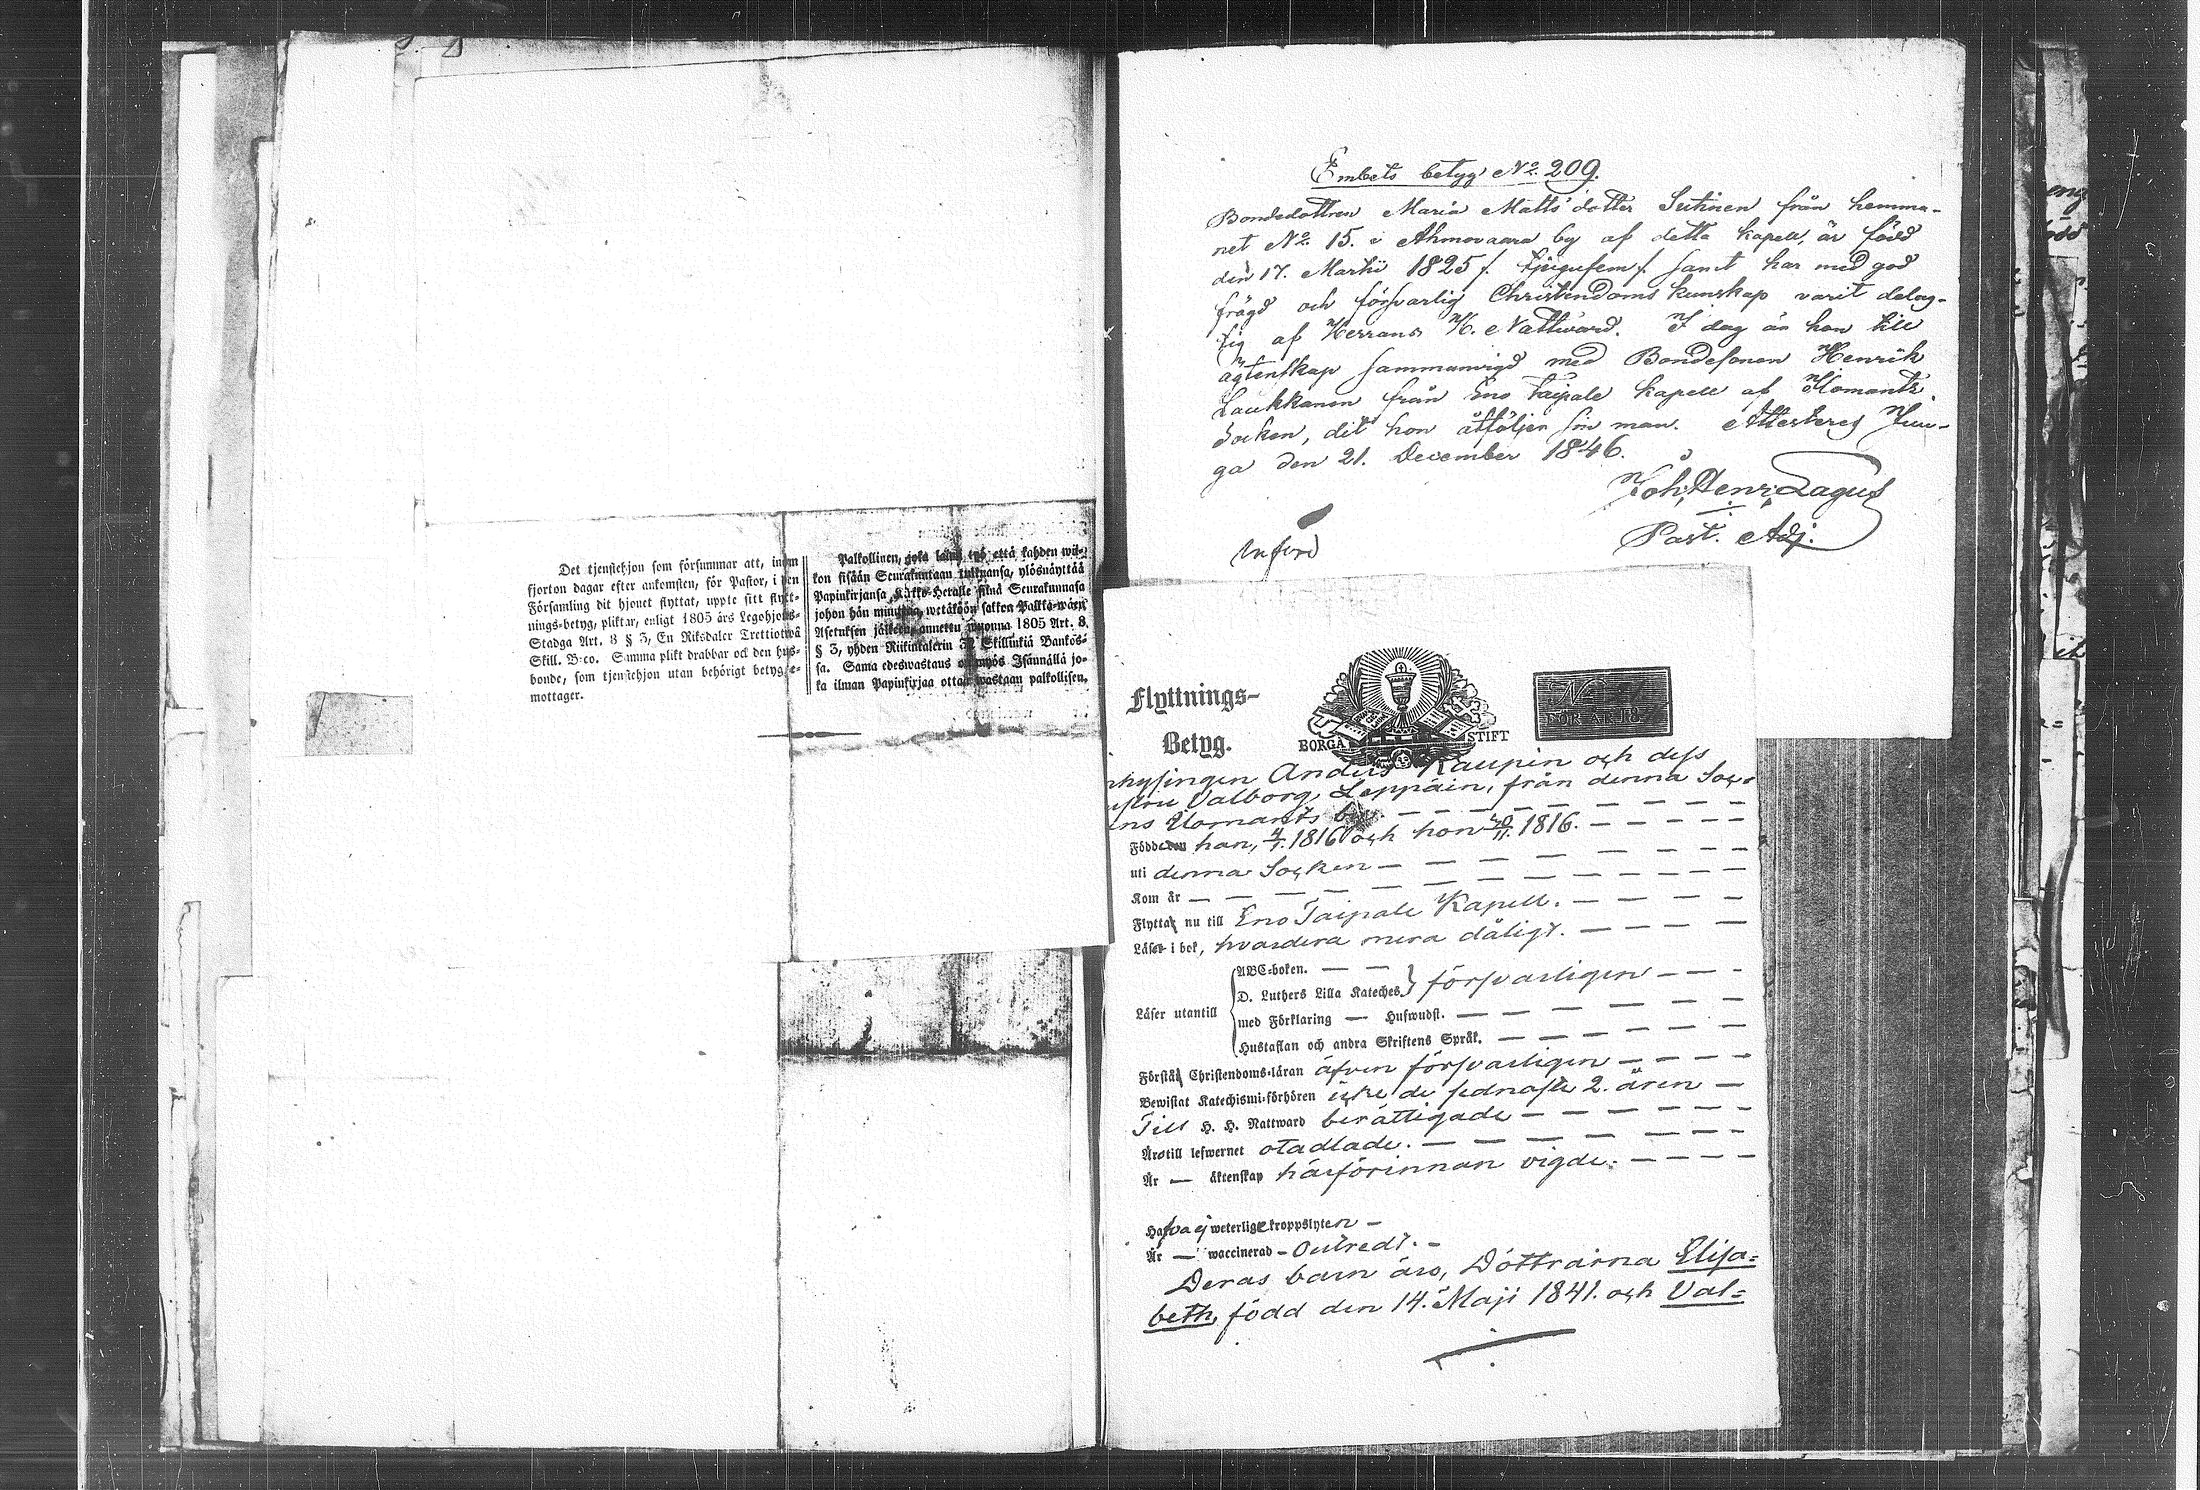 Det tjenstehjon som försummar att, inom
fjorton dagar efter ankomsten, för Pastor, i den
Församling dit hjonet flyttat, uppte sitt flytt-
nings-betyg, pliktar, enligt 1805 års Legohjons-
Stadga Art. 8 § 3, En Riksdaler Trettiotwå
Skill. B:co. Samma plikt drabbar ock den hus-
bonde, som tjenstehjon utan behörigt betyg e-
mottager.
Palkollinen, joka että kahden wii-
kon sisään Seurakuntaan tulkuansa, ylösnäyttää
Papinkirjansa Kirkko-Herralle siinä Seurakunnasa
johon hän wetäköön sakkoa Palkka-wäen
Asetuksen jälkeen, annettu wuonna 1805 Art. 8.
§ 3, yhden Riikintalerin 32 Skillinkiä Bankos-
sa. Sama edeswastaus on myös Isännällä jo-
ka ilman Papinkirjaa ottaa wastaan palkollisen.
Embets betyg No 209.
Bondedottren Maria Matts dotter Sutinen från hemma-
net No 15. i Ahmovaara by af detta kapell, är född
den 17. Martii 1825 /. tjugufem /. samt har med god
frägd och försvarlig Christendoms kunskap varit delag-
tig af Herrans H. Nattward. I dag är hon till
ägtenskap sammanvigd med Bondesonen Henrik
Laukkanen från Eno Taipale kapell af Ilomants
Socken, dit hon åtföljer sin man. Attesteras Juu-
ga den 21. December 1846.
Joh. Henr. Lagus
Past. Adj.
Införd
Flyttnings-
Betyg.
BORGÅ STIFT
No
FÖR ÅR 18
Inhysingen Anders Kaupin och dess
Hustru Valborg Leppäin, från denna Soc-
kens Ilomants by. — — —
Född han, 4/1. 1816 och hon 1816. — — —
uti denna Socken — — —
Kom år — — —
Flytta nu till Eno Taipale Kapell. — — —
Läser i bok, hvardera mera dåligt. — — —
Läser utantill
ABC-boken. — —
D. Luthers Lilla Kateches } försvarligen — — —
med Förklaring — Huswudst. — — —
Hustaflan och andra Skriftens Språk. — — —
Förstå Christendoms-läran äfven försvarligen — — —
Bewistat Katechismi-förhören icke de sednaste 2. åren —
Till H. H. Nattward berättigade — — —
Äro till lefwernet otadlade. — — —
Är — äktenskap härförinnan vigde. — — —
Hafva ej weterlige kroppslyten —
Är — waccinerad — Outredt. —
Deras barn äro, Döttrarna Elisa=
beth, född den 14. Maji 1841. och Val=